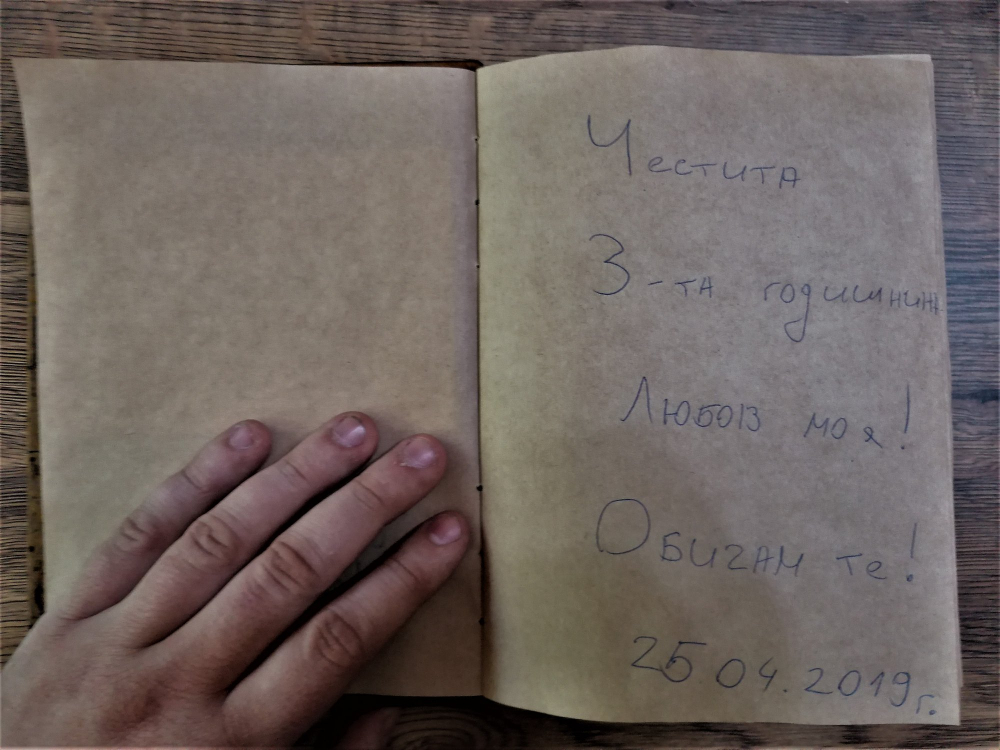 Честита
3-та годишнина
Любов моя!
Обичам те!
25 04.2019г.